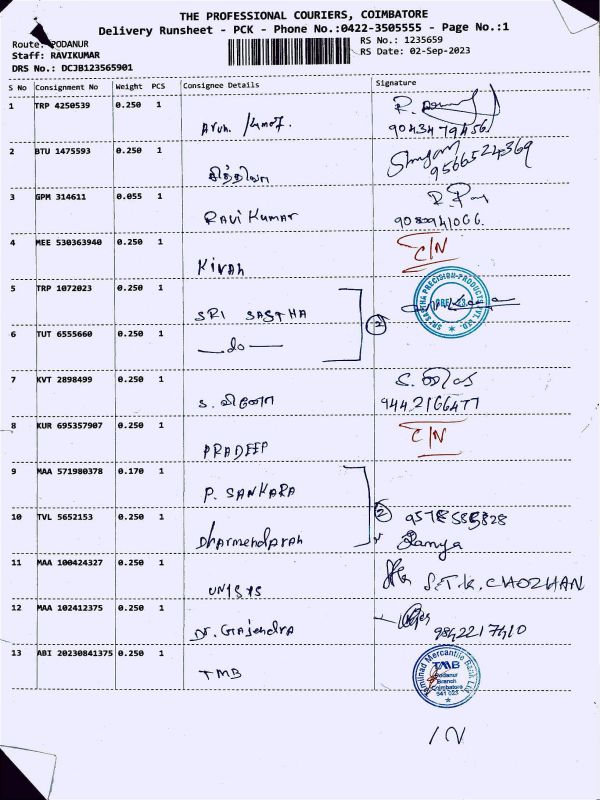 THE PROFESSIONAL COURIERS, COIMBATORE
Delivery Runsheet - PCK - Phone No.:0422-3505555 - Page No.:1
Route: PODANUR
Staff: RAVIKUMAR
DRS No.: DCJB123565901
RS No.: 1235659
RS Date: 02-Sep-2023
S No Consignment No Weight PCS Consignee Details Signature
1 TRP 4250539 0.250 1
Arun.
9043479456
2 BTU 1475593 0.250 1
9566524369
3 GPM 314611 0.055 1
RAVI KUMAR
4 MEE 530363940 0.250 1 C/N
KIRAN
5 TRP 1072023 0.250 1
SRI SASTHA
SRI SASTHA PRECISION PRODUCTS PVT. LTD.
2
6 TUT 6555660 0.250 1
—do—
7 KVT 2898499 0.250 1
S. வினோ
9442166477
8 KUR 695357907 0.250 1 C/N
PRADEEP
9 MAA 571980378 0.170 1
P. SANKARA
2
10 TVL 5652153 0.250 1
Ramya
11 MAA 100424327 0.250 1
S.T.K. CHOZHAN
12 MAA 102412375 0.250 1
Dr. Gajendra 9842217410
13 ABI 20230841375 0.250 1
TMB
Tamilnad Mercantile Bank Ltd
TMB
Podanur
Branch
Coimbatore
641 023